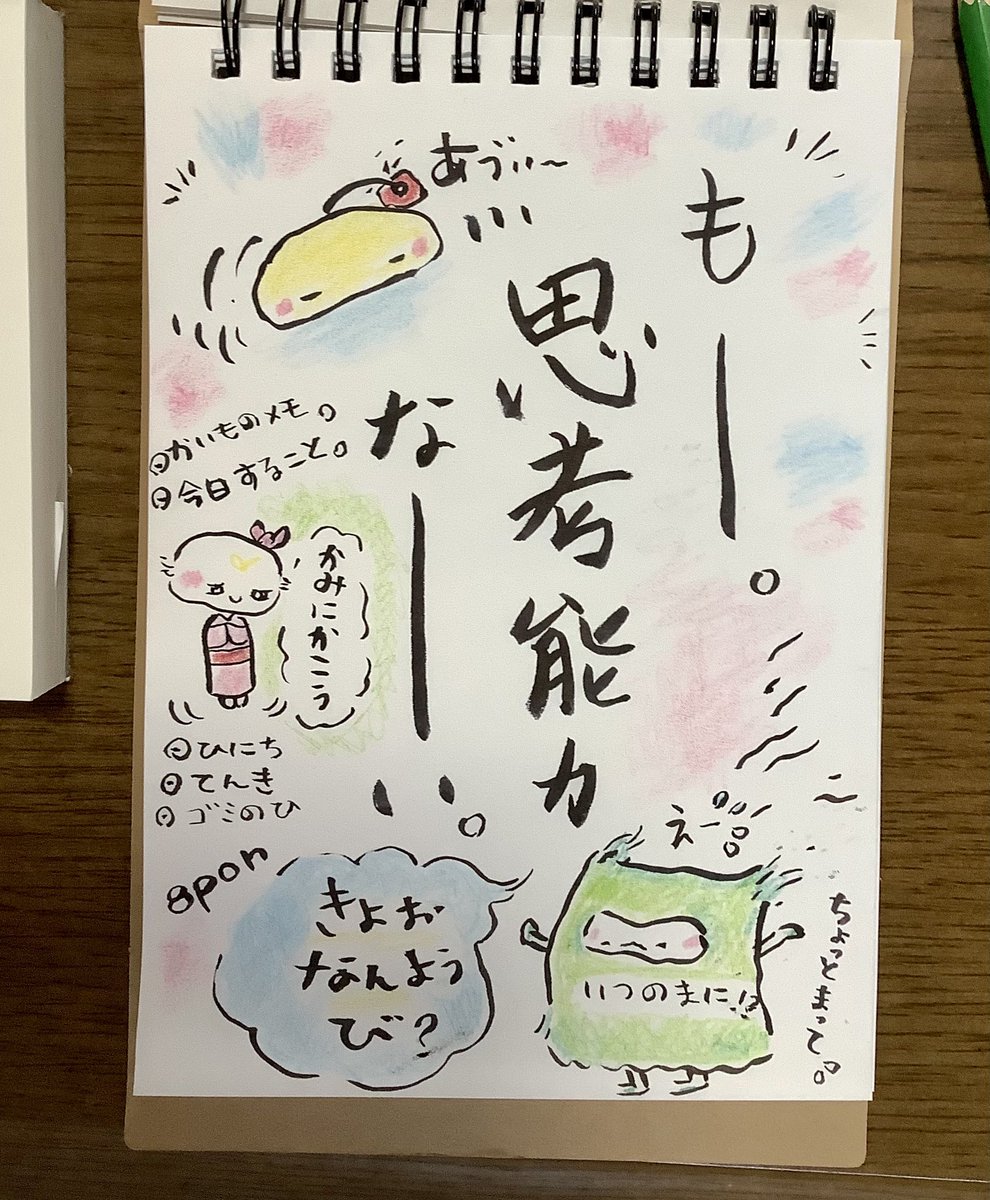 もー。
思考能力
なーい。
あゔぃ〜
かいものメモ。
今日すること。
かみにかこう
ひにち
てんき
ゴミのひ
8pon
きょお
なんよう
び？
えー
いつのまに!?
ちょっとまって。